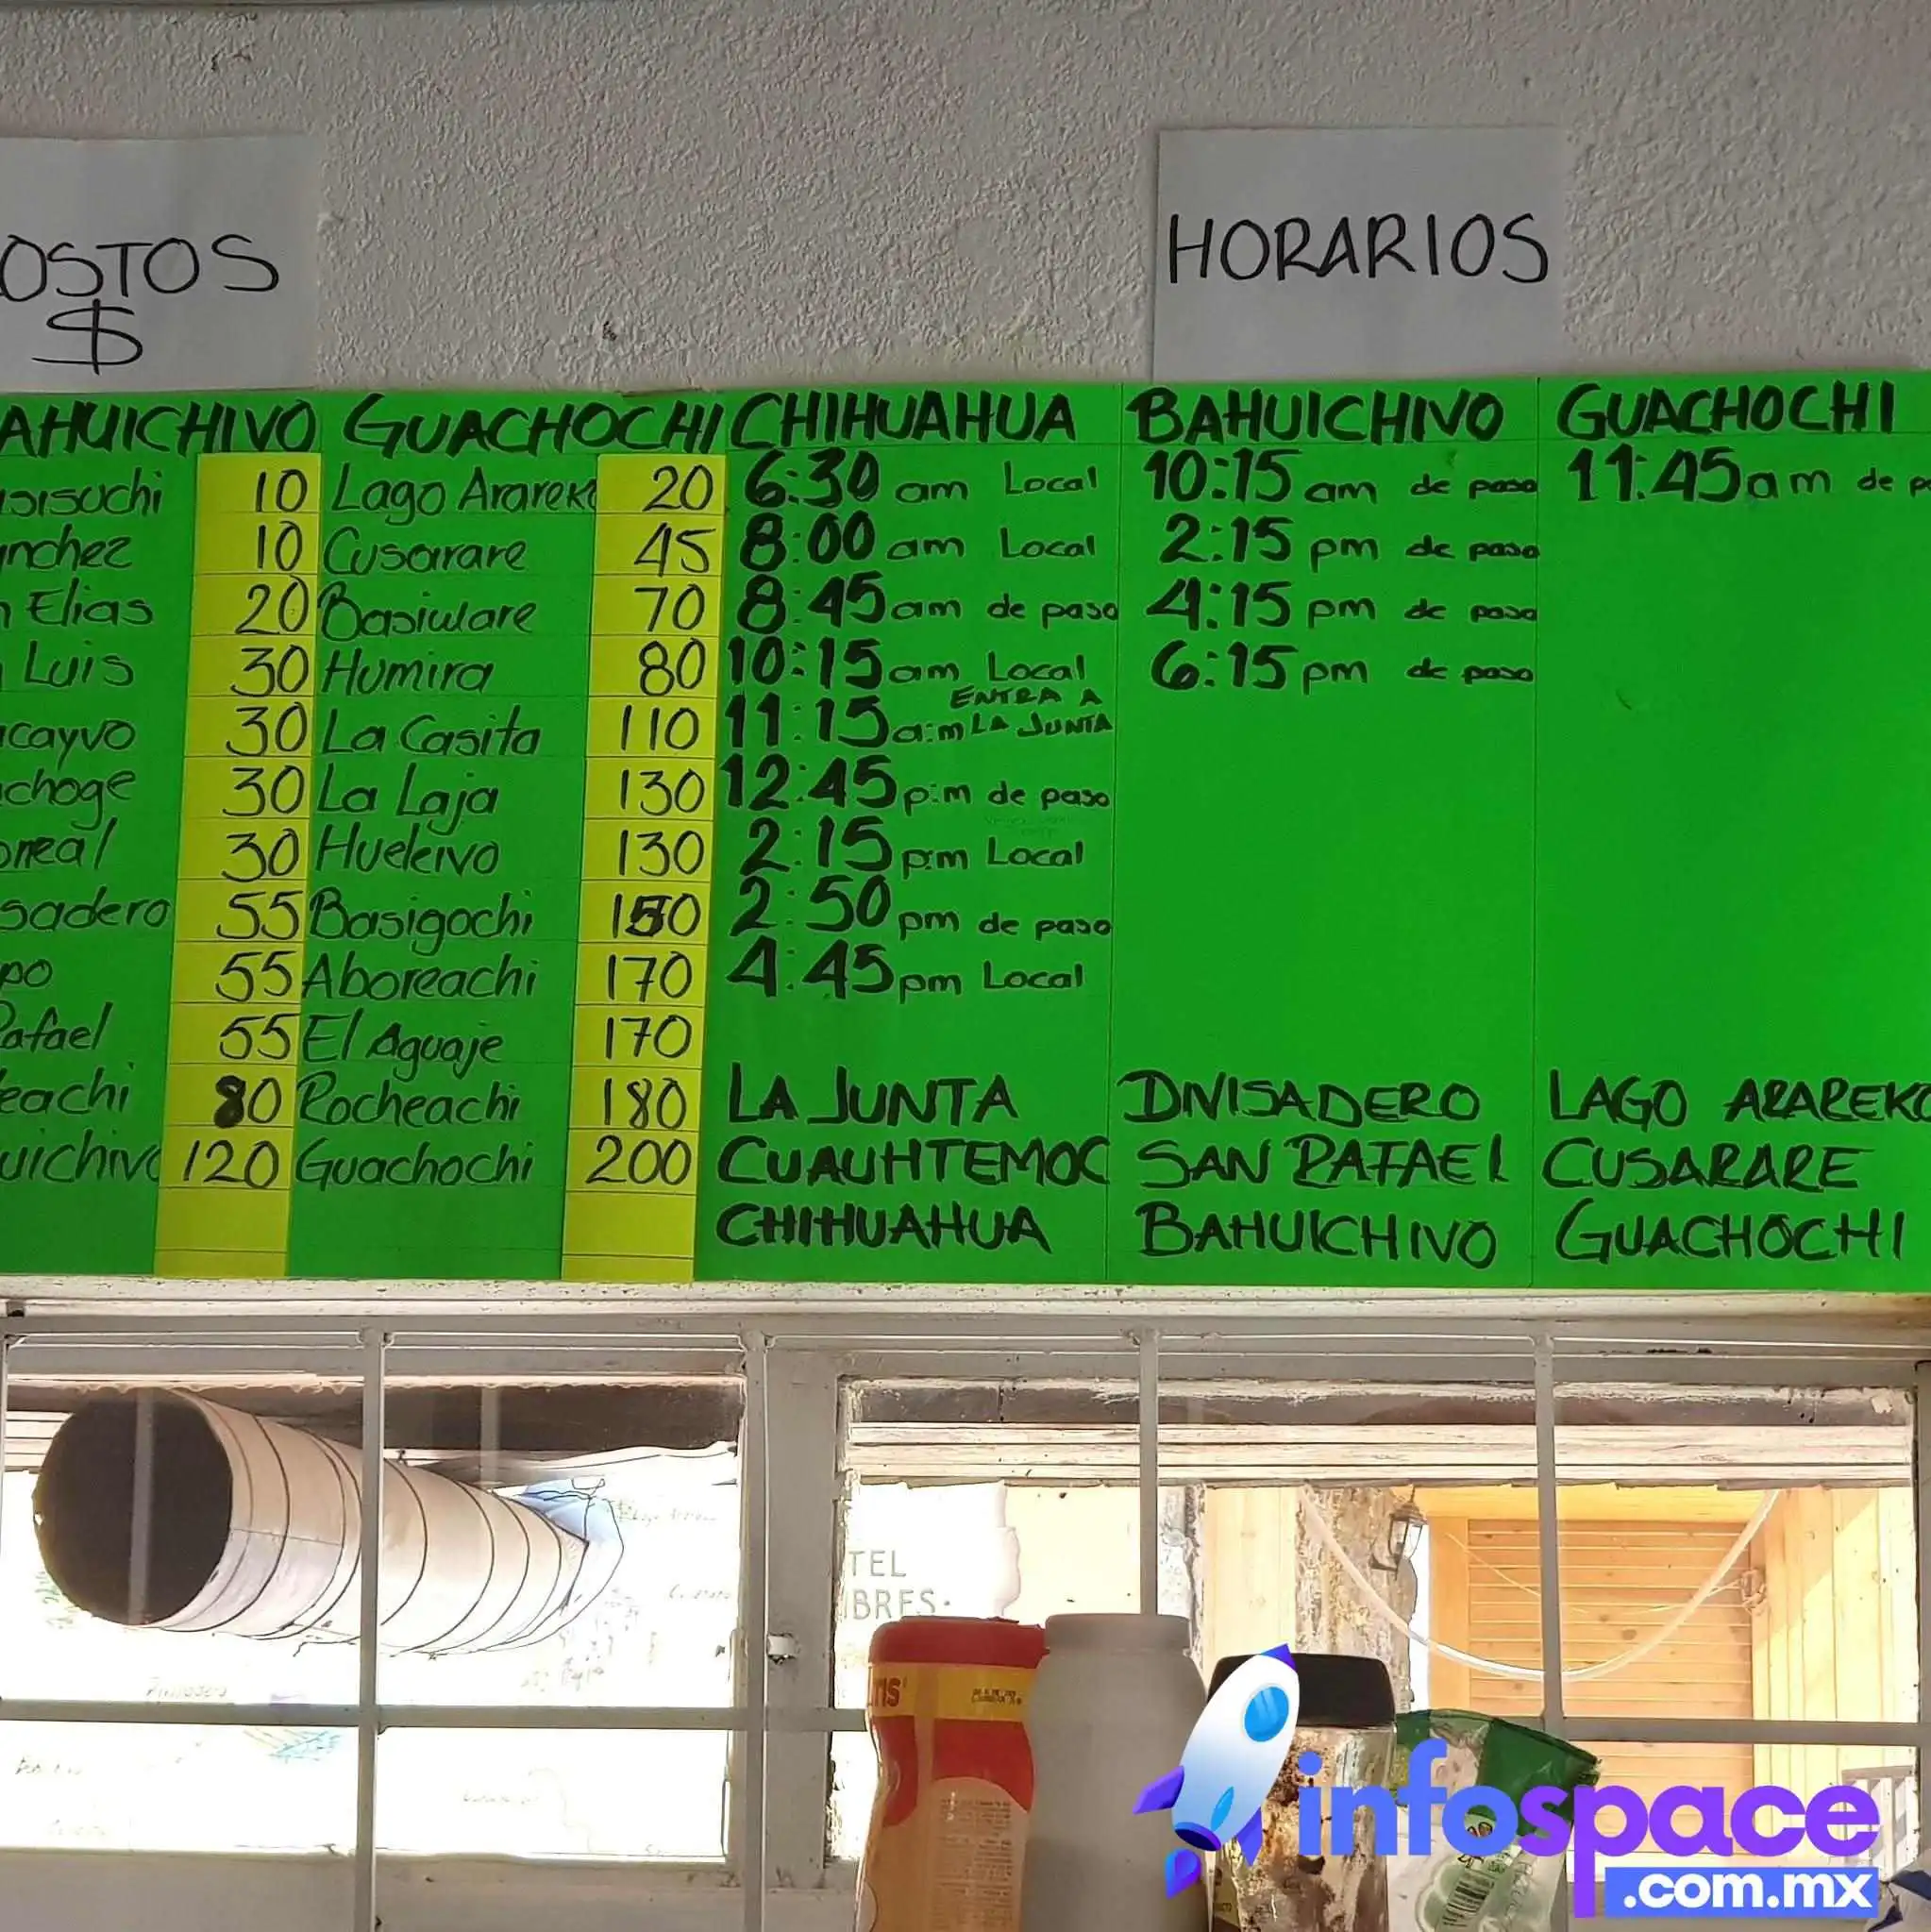 OSTOS
$
HORARIOS
AHUICHIVO GUACHOCHI CHIHUAHUA BAHUICHIVO GUACHOCHI
10 Lago Arareko 20 6:30 am Local 10:15 am de paso 11:45 am de
nchez 10 Cusarare 45 8:00 am Local 2:15 pm de paso
Elias 20 Basiware 70 8:45 am de paso 4:15 pm de paso
Luis 30 Humira 80 10:15 am Local 6:15 pm de paso
cayvo 30 La Casita 110 11:15 a:m ENTRA A LA JUNTA
choge 30 La Laja 130 12:45 p:m de paso
rreal 30 Hueleivo 130 2:15 p:m Local
sadero 55 Basigochi 150 2:50 pm de paso
po 55 Aboreachi 170 4:45 pm Local
Rafael 55 El Aguaje 170
eachi 80 Rocheachi 180 LA JUNTA DIVISADERO LAGO ARAREKO
uichivo 120 Guachochi 200 CUAUHTEMOC SAN RAFAEL CUSARARE
CHIHUAHUA BAHUICHIVO GUACHOCHI
TEL
BRES.
infospace
.com.mx